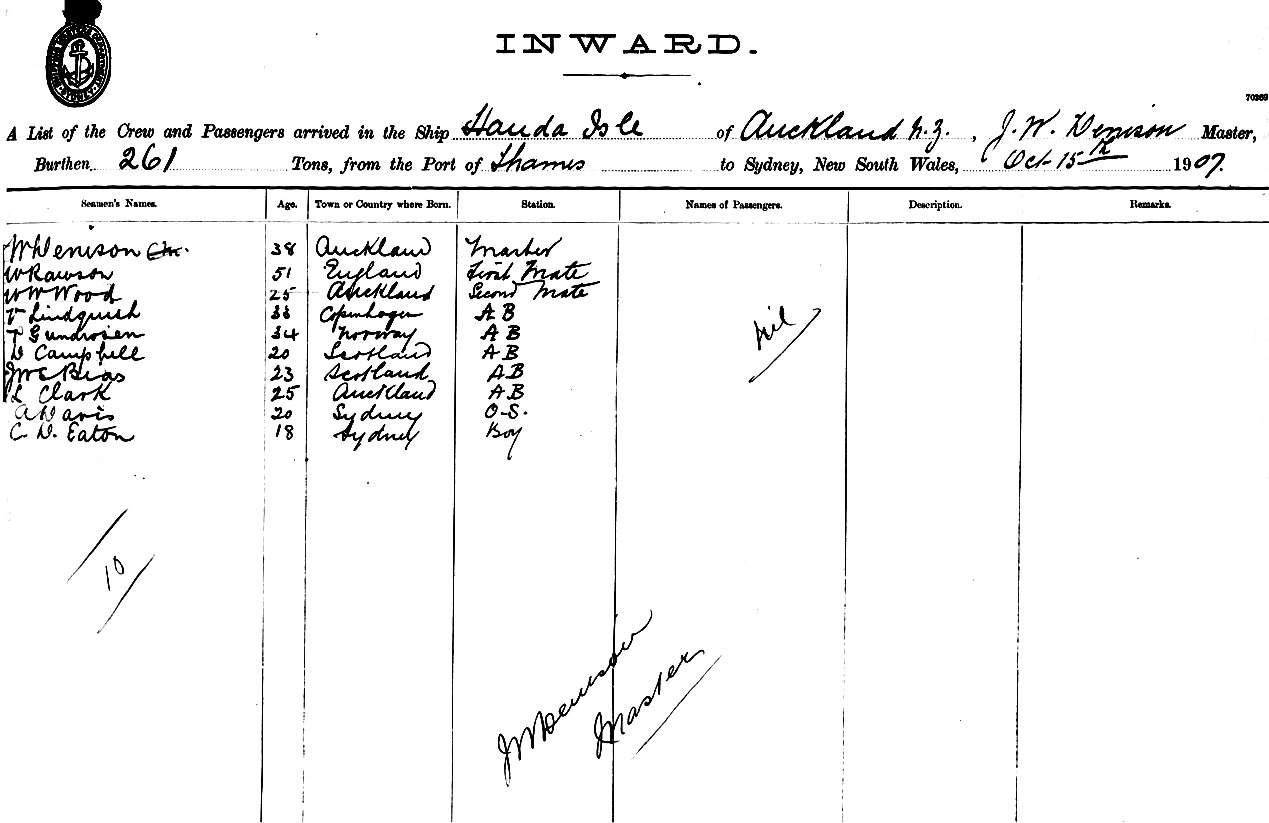 INWARD.
70369
A List of the Crew and Passengers arrived in the Ship Handa Isle of Auckland N.Z., J. W. Denison Master,
Burthen 261 Tons, from the Port of Thames to Sydney, New South Wales, Oct 15th 1907.
Seamen's Names. Age. Town or Country where Born. Station. Names of Passengers. Description. Remarks.
JW Denison 38 Auckland Master
W Rawson 51 England First Mate
W W Wood 25 Auckland Second Mate
Lindquish Copenhagen A B
Gundrosen 34 Norway A B
D Campbell 20 Scotland A B
23 Scotland A B
L Clark 25 Auckland A B
A Davis 20 Sydney O.S.
C. D. Eaton 18 Sydney Boy
nil
10
JW Denison
Master